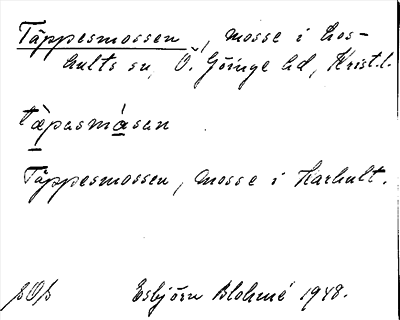 Täppesmossen, mosse i Los-
hults sn, Ö. Göinge hd, Krist.l.
tæ̀pasmɑ́san
Täppesmossen, mosse i Harhult.
Esbjörn Blohmé 1948.